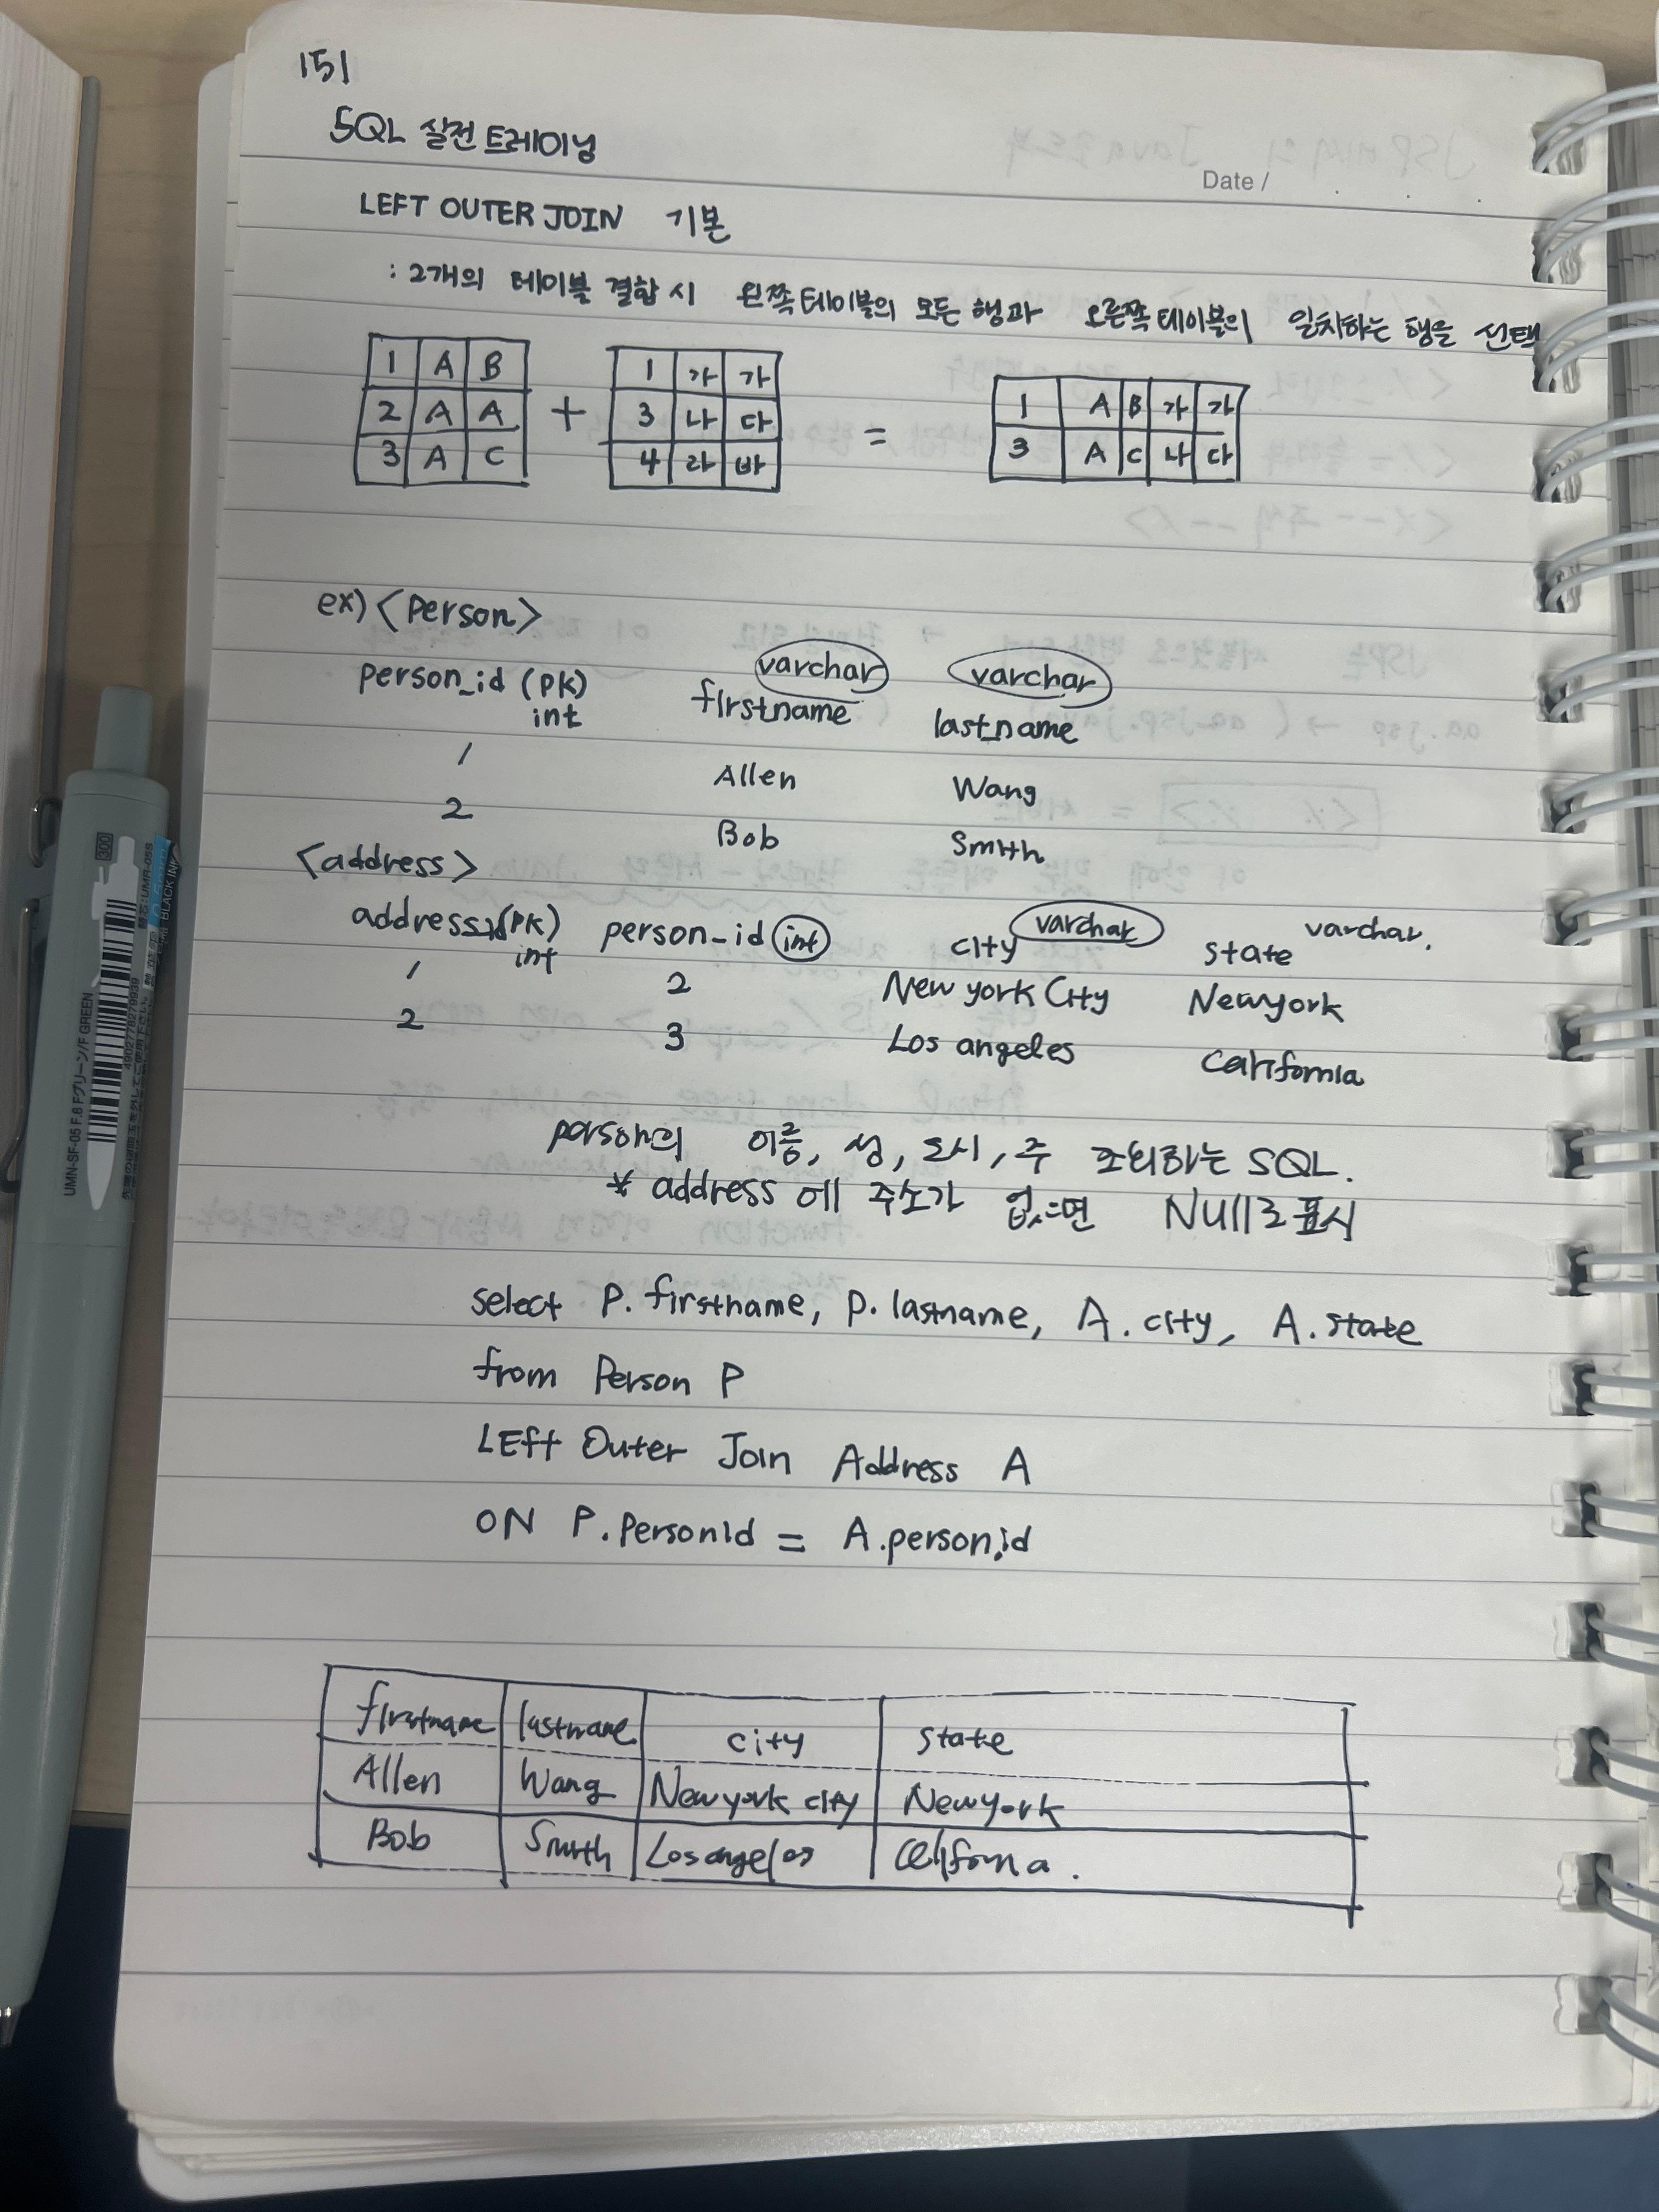 151
SQL 실전 트레이닝
Date / . .
LEFT OUTER JOIN 기본
: 2개의 테이블 결합 시 왼쪽 테이블의 모든 행과 오른쪽 테이블의 일치하는 행을 선택
1 A B
2 A A
3 A C
+
1 가 가
3 나 다
4 라 바
=
1 A B 가 가
3 A C 나 다
ex) <person>
person_id (PK) int
varchar firstname
varchar lastname
1 Allen Wang
2 Bob Smith
<address>
(PK) int person_id int city varchar state varchar.
1 2 New york City Newyork
2 3 Los angeles California
person의 이름, 성, 도시, 주 조회하는 SQL.
* address에 주소가 없으면 Null로 표시
select P.firstname, p.lastname, A.city, A.state
from Person P
LEft Outer Join Address A
ON P.PersonId = A.person_id
firstname lastname city state
Allen Wang Newyork city Newyork
Bob Smith Los angeles California.
300
UMN-SF-05 F.6 Fグリーン/F GREEN
4902778279939
BLACK INK